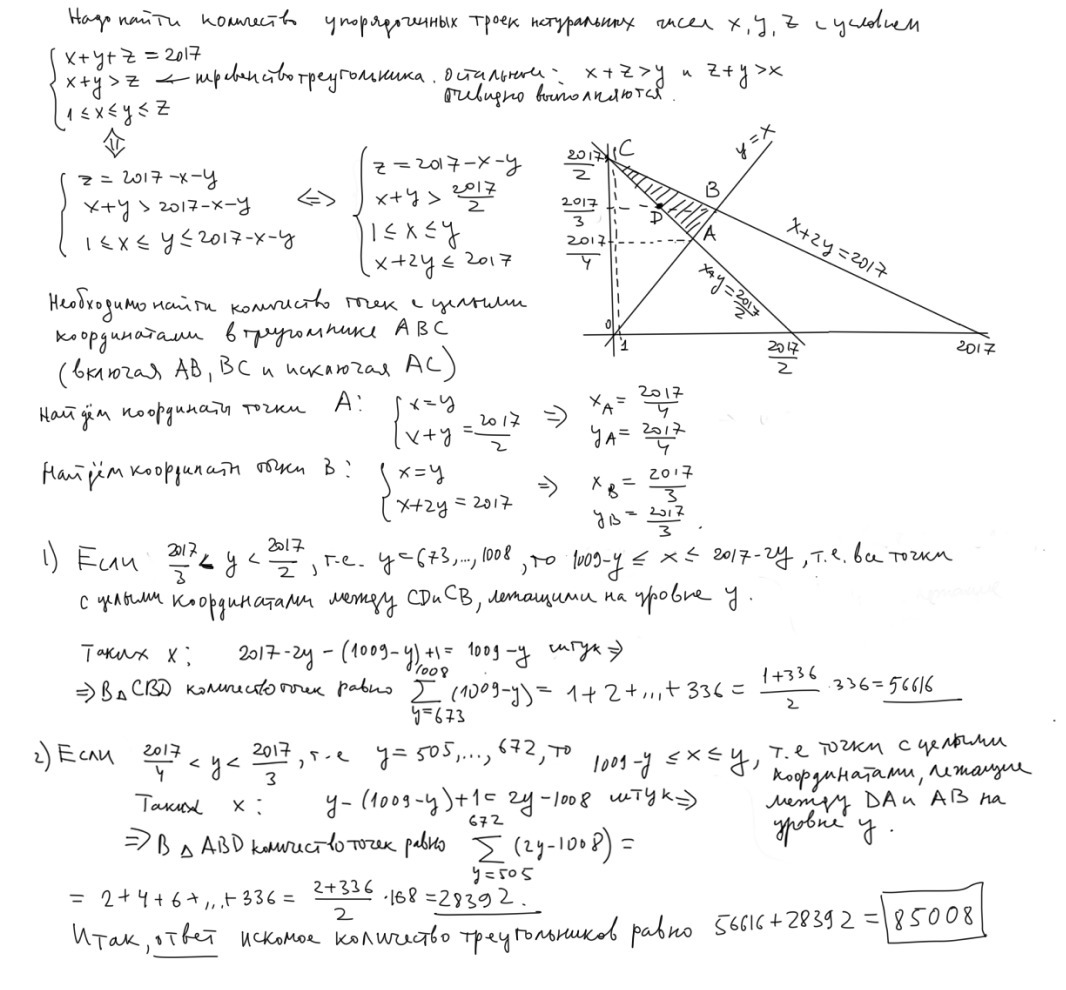 Надо найти количество упорядоченных троек натуральных чисел x, y, z с условием
x+y+z = 2017
x+y > z ← неравенство треугольника. Остальные: x+z>y и z+y>x
очевидно выполняются.
1 ≤ x ≤ y ≤ z
⇕
z = 2017-x-y
x+y > 2017-x-y
1 ≤ x ≤ y ≤ 2017-x-y
⇔
z = 2017-x-y
x+y > 2017/2
1 ≤ x ≤ y
x+2y ≤ 2017
2017/2
C
y=x
2017/3
D
B
2017/4
A
x+2y=2017
x+y=2017/2
0
1
2017/2
2017
Необходимо найти количество точек с целыми
координатами в треугольнике ABC
(включая AB, BC и исключая AC)
Найдём координаты точки A: x=y
x+y = 2017/2
⇒ x_A = 2017/4
y_A = 2017/4
Найдём координаты точки B: x=y
x+2y = 2017
⇒ x_B = 2017/3
y_B = 2017/3.
1) Если 2017/3 < y < 2017/2, т.е. y=673,...,1008, то 1009-y ≤ x ≤ 2017-2y, т.е. все точки
с целыми координатами между CD и CB, лежащими на уровне y.
Таких x: 2017-2y-(1009-y)+1 = 1009-y штук ⇒
⇒ В △ CBD количество точек равно ∑_{y=673}^{1008} (1009-y) = 1+2+...+336 = (1+336)/2 · 336 = 56616
2) Если 2017/4 < y < 2017/3, т.е y=505,...,672, то 1009-y ≤ x ≤ y, т.е точки с целыми
координатами, лежащие
между DA и AB на
уровне y.
Таких x: y-(1009-y)+1 = 2y-1008 штук ⇒
⇒ В △ ABD количество точек равно ∑_{y=505}^{672} (2y-1008) =
= 2+4+6+...+336 = (2+336)/2 · 168 = 28392.
Итак, ответ искомое количество треугольников равно 56616+28392 = 85008